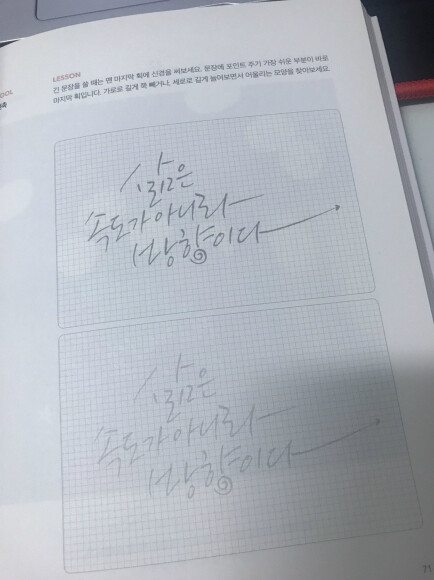 LESSON
긴 문장을 쓸 때는 맨 마지막 획에 신경을 써보세요. 문장에 포인트 주기 가장 쉬운 부분이 바로
마지막 획입니다. 가로로 길게 쭉 빼거나, 세로로 길게 늘여보면서 어울리는 모양을 찾아보세요.
삶은
속도가 아니라
방향이다
삶은
속도가 아니라
방향이다
71